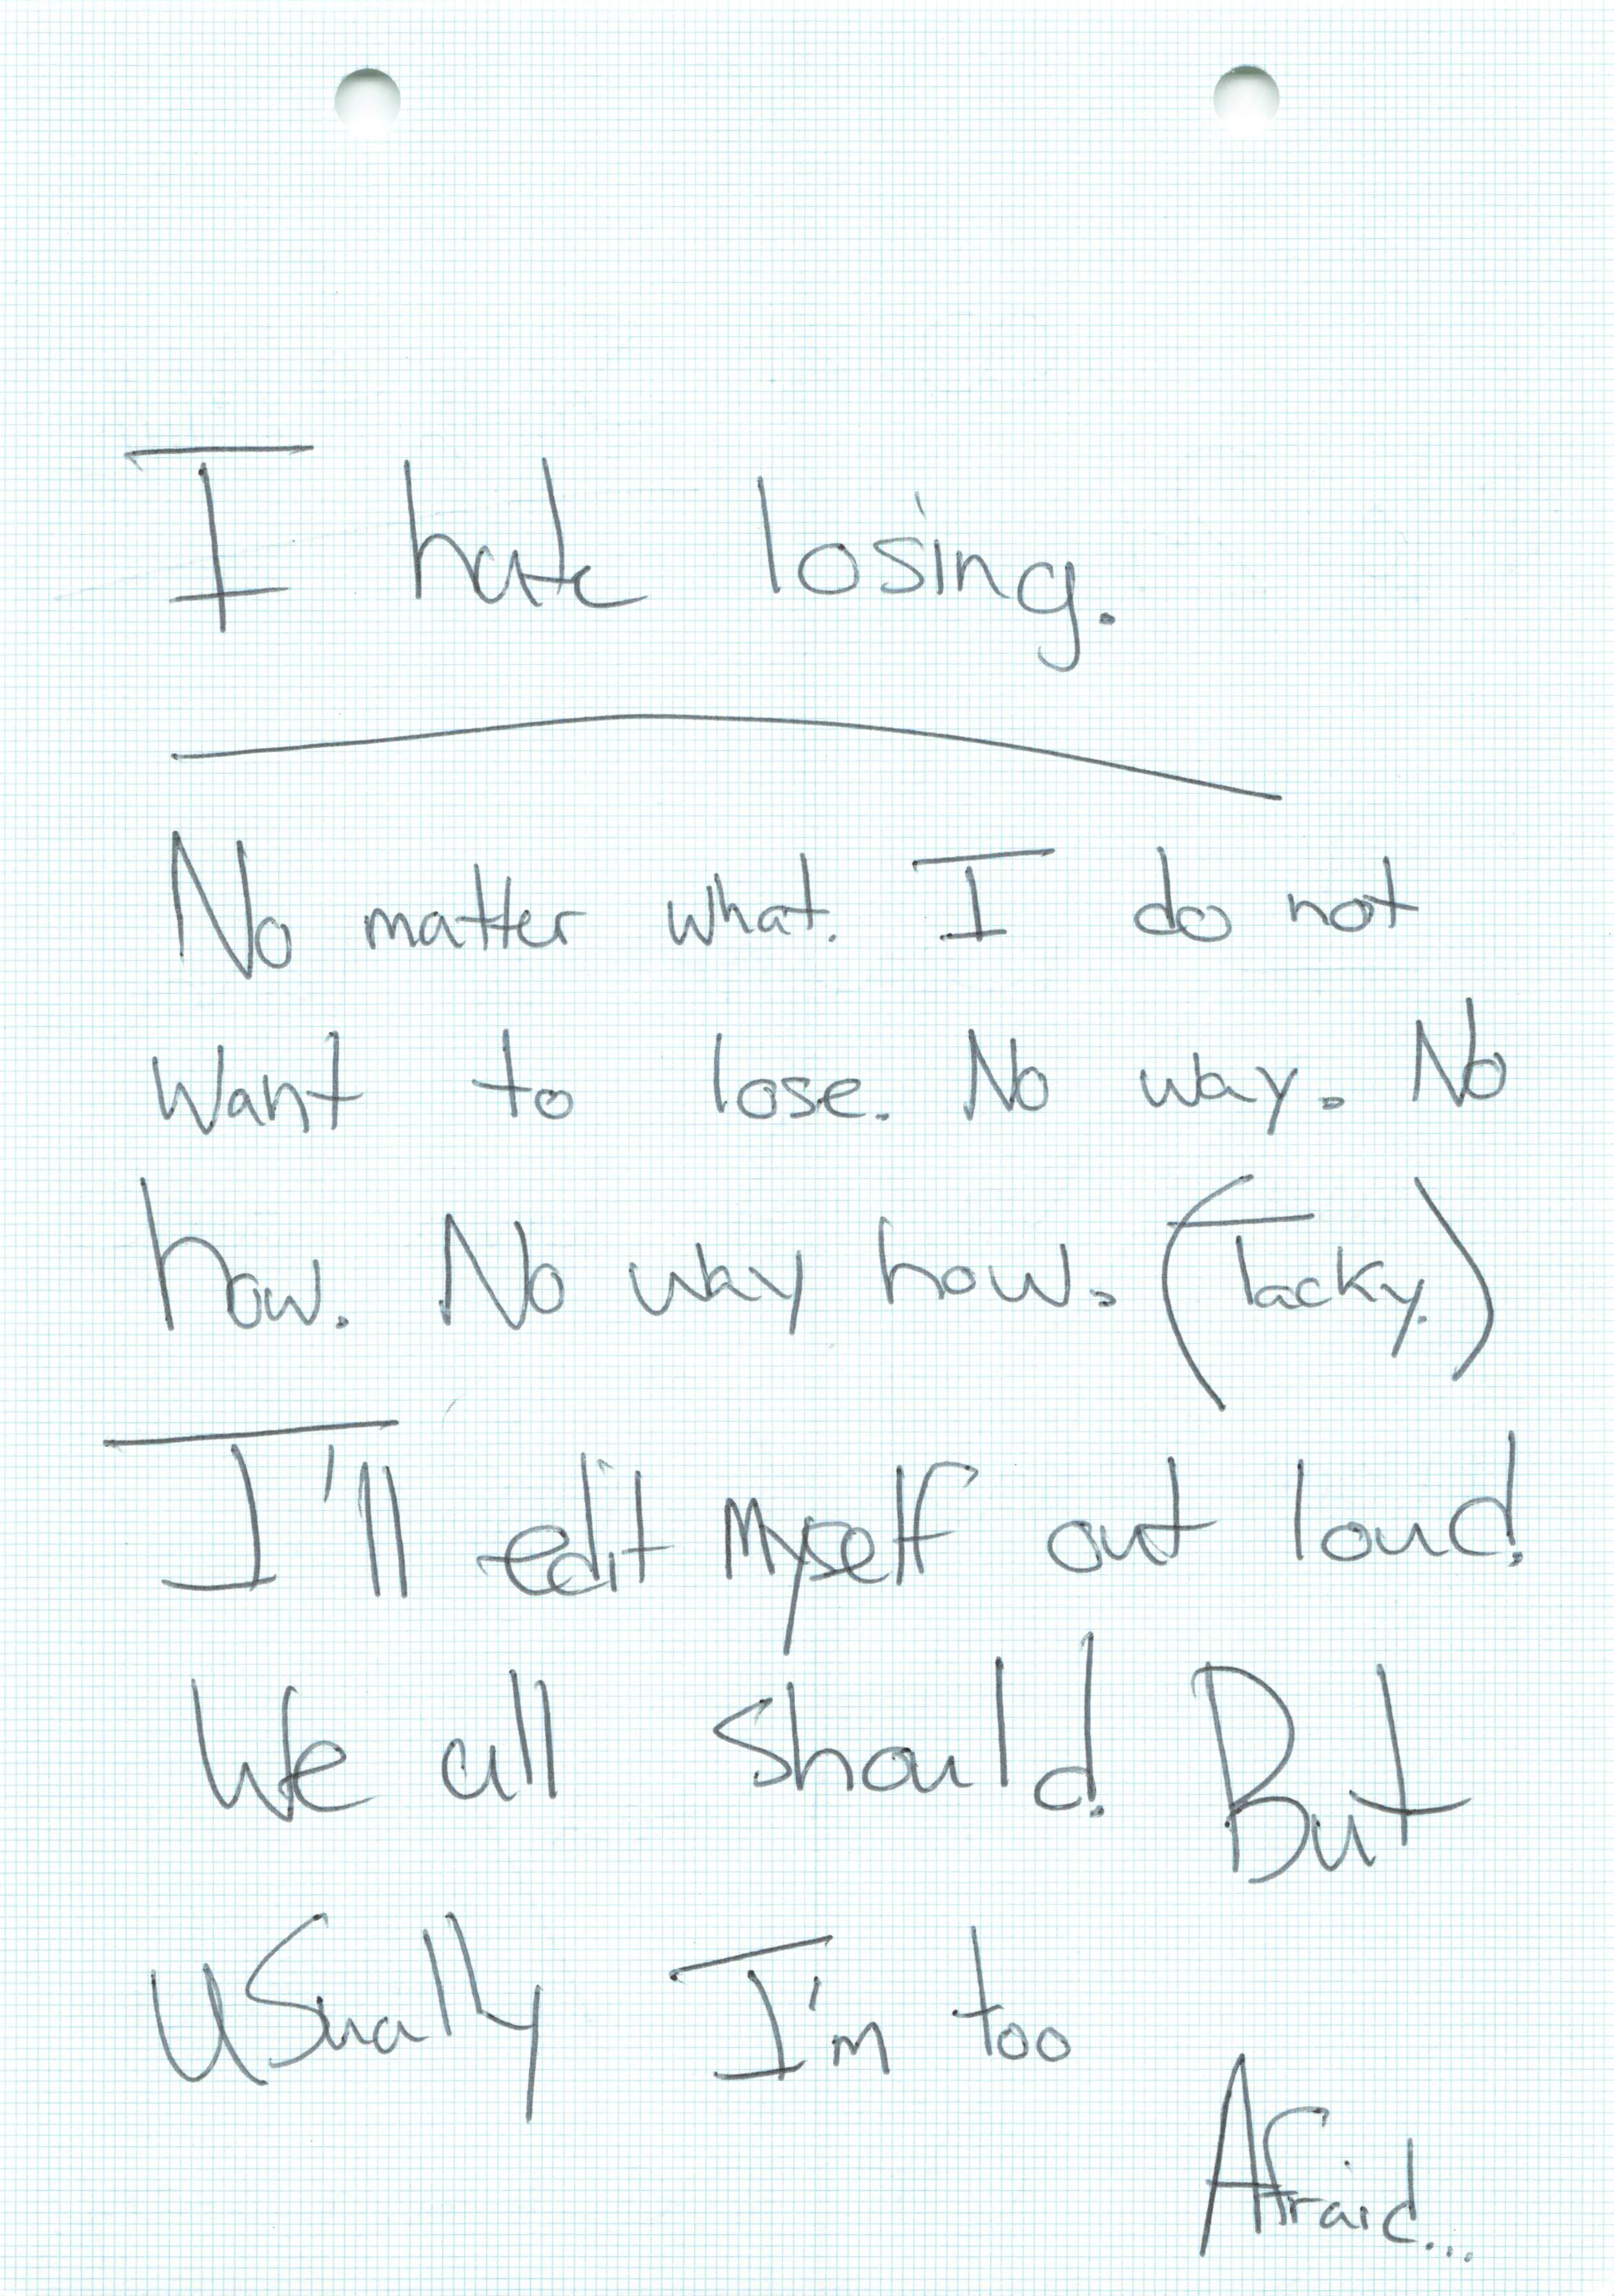 I hate losing.
No matter what. I do not
Want to lose. No way. No
how. No way how. (Tacky.)
I'll edit Myself out loud.
We all Should. But
USually I'm too
Afraid...